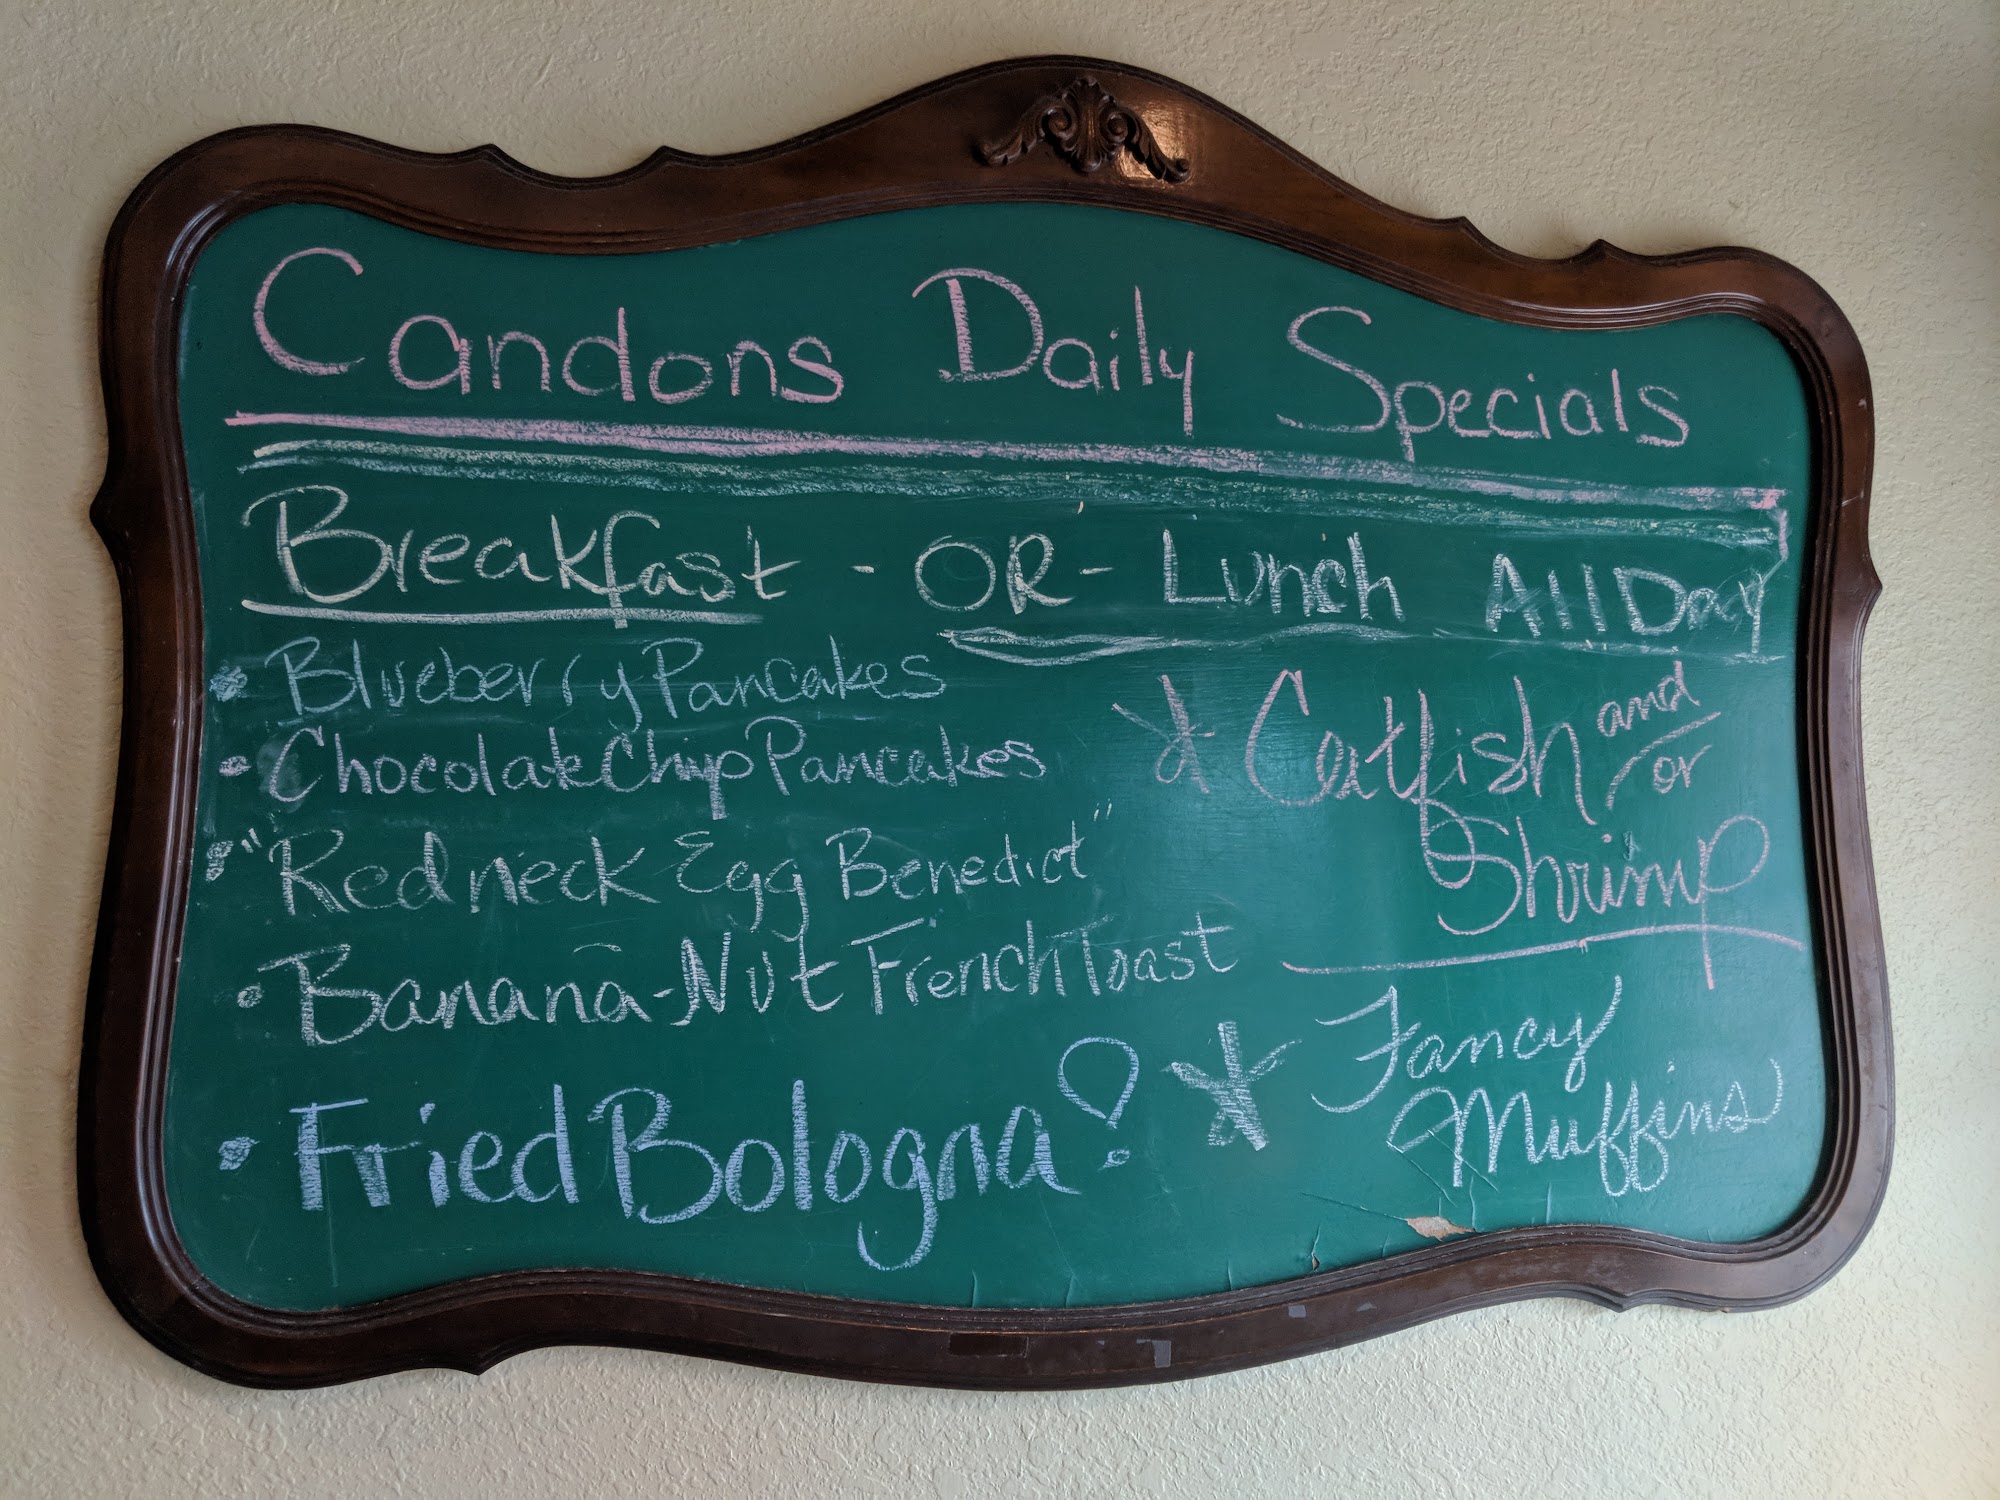 Candons Daily Specials
Breakfast - OR - Lunch All Day
• Blueberry Pancakes
• Chocolate Chip Pancakes
• "Redneck Egg Benedict"
• Banana-Nut French Toast
• Fried Bologna!
* Catfish and/or
Shrimp
* Fancy
Muffins